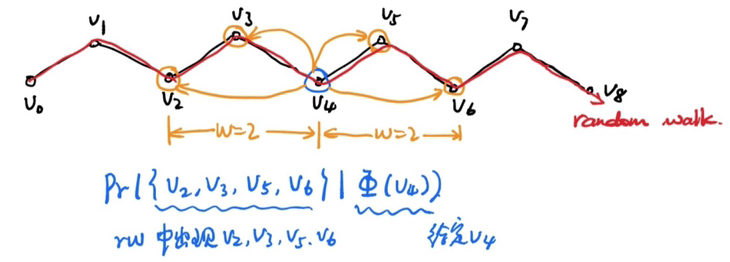 v₁ v₃ v₅ v₇
v₀ v₂ v₄ v₆ v₈
w=2 w=2
random walk.
Pr({v₂, v₃, v₅, v₆} | Φ(v₄))
rw 中出现 v₂, v₃, v₅. v₆ 给定 v₄